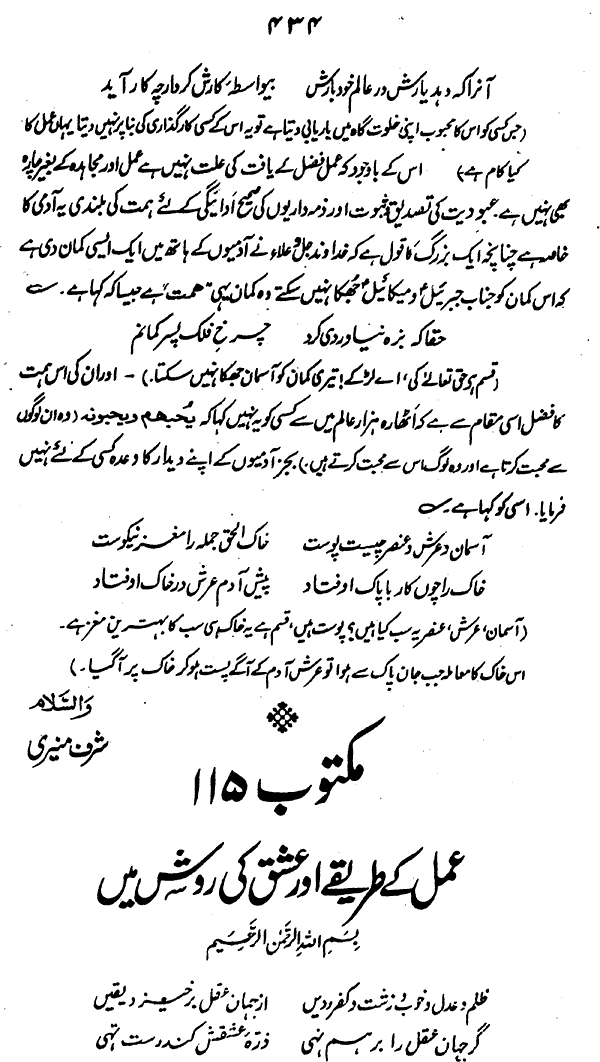 ۴۳۴
آنرا کہ دہد یارش در عالم خود بارش بیواسطہ کارش کردار چہ کار آید
(جس کسی کو اس کا محبوب اپنی خلوت گاہ میں باریابی دیتا ہے تو یہ اس کے کسی کار گذاری کی بنا پر نہیں دیتا یہاں عمل کا
کیا کام ہے) اس کے باوجود کہ عمل فضل کے یافت کی علت نہیں ہے عمل اور مجاہدہ کے بغیر چارہ
بھی نہیں ہے۔ عبودیت کی تصدیق و ثبوت اور ذمہ داریوں کی صحیح ادائیگی کے لئے ہمت کی بلندی یہ آدمی کا
خاصہ ہے چنانچہ ایک بزرگ کا قول ہے کہ خداوند جل و علاء نے آدمیوں کے ہاتھ میں ایک ایسی کمان دی ہے
کہ اس کمان کو جناب جبرئیلؑ و میکائیلؑ جھکا نہیں سکتے وہ کمان یہی "ھمت" ہے جیسا کہ کہا ہے۔
حقا کہ بزہ نیاورد ی کرد چرخ فلک پسر کمانم
(قسم ہو حق تعالےٰ کی، اے لڑکے! تیری کمان کو آسمان جھکا نہیں سکتا۔) ۔ اور ان کی اس ہمت
کا فضل اسی مقام سے ہے کہ اٹھارہ ہزار عالم میں سے کسی کو یہ نہیں کہا کہ یُحبھم ویحبونہ (وہ ان لوگوں
سے محبت کرتا ہے اور وہ لوگ اس سے محبت کرتے ہیں۔) بجز آدمیوں کے اپنے دیدار کا وعدہ کسی کے لئے نہیں
فرمایا۔ اسی کو کہا ہے۔
آسمان و عرش و عنصر چیست پوست خاک الحق جملہ را مغز نیکوست
خاک را چوں کار با پاک اوفتاد پیش آدم عرش در خاک اوفتاد
(آسمان، عرش، عنصر یہ سب کیا ہیں؟ پوست ہیں، قسم ہے یہ خاک ہی سب کا بہترین مغز ہے۔
اس خاک کا معاملہ جب جان پاک سے ہوا تو عرش آدم کے آگے پست ہو کر خاک پر آگیا۔)
والسّلام
شرف منیری
مکتوب ۱۱۵
عمل کے طریقے اور عشق کی روش میں
بِسْمِ اللہِ الرَّحْمٰنِ الرَّحِیْم
ظلم و عدل و خوب و زشت و کفر و دین از جہان عقل بر خیزد یقیں
گر جہان عقل را برہم نہی ذرۂ عشقش کند دست تہی